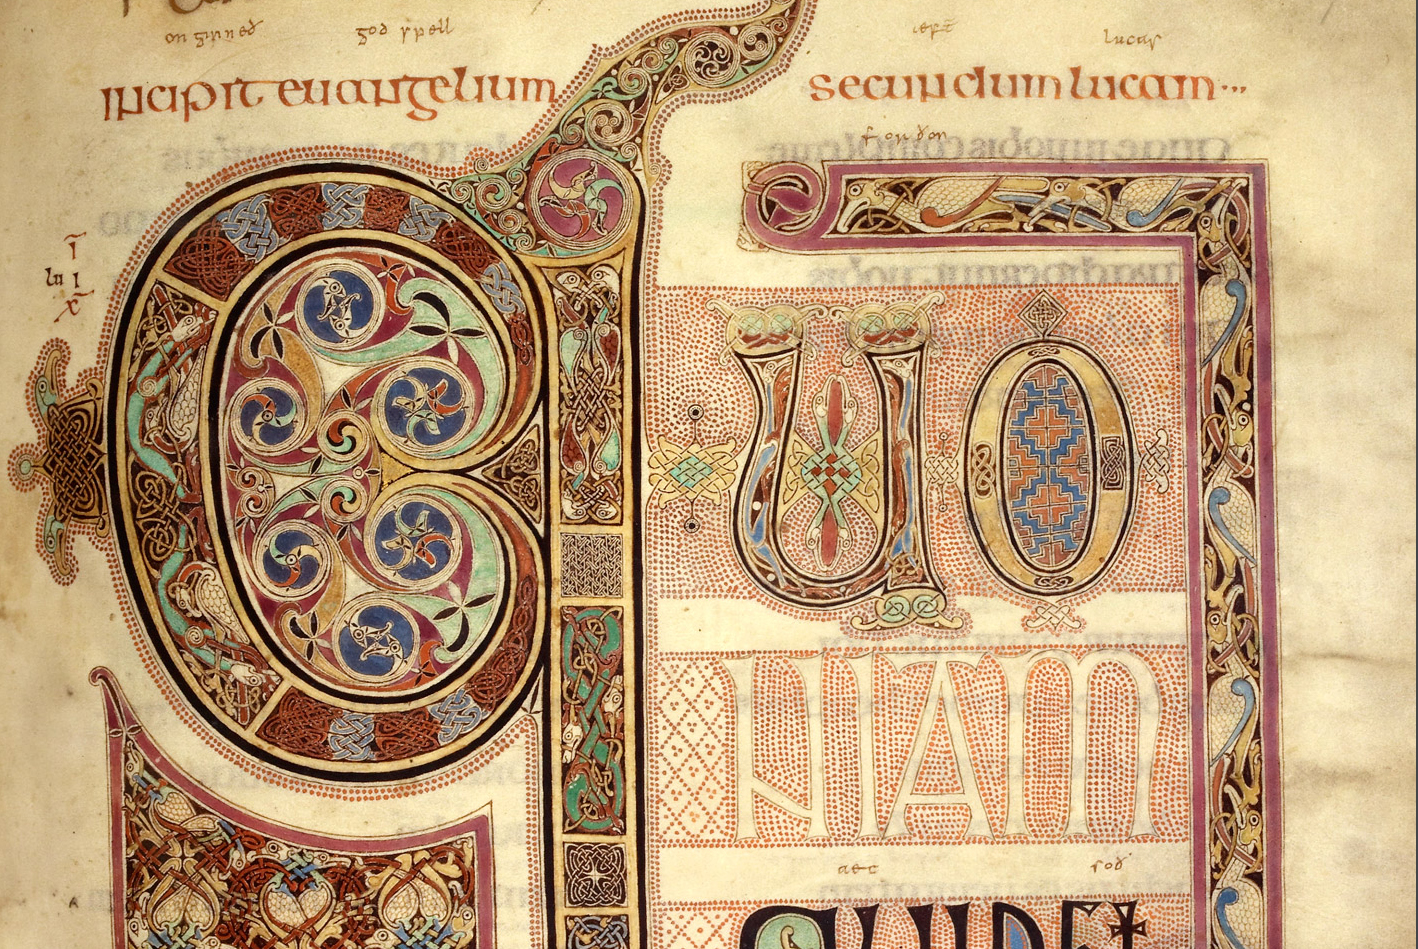 onginned godspell æft lucas
incipit euangelium secundum lucam...
fordon
lu
QUO
NIAM
aec soð
QUIDE